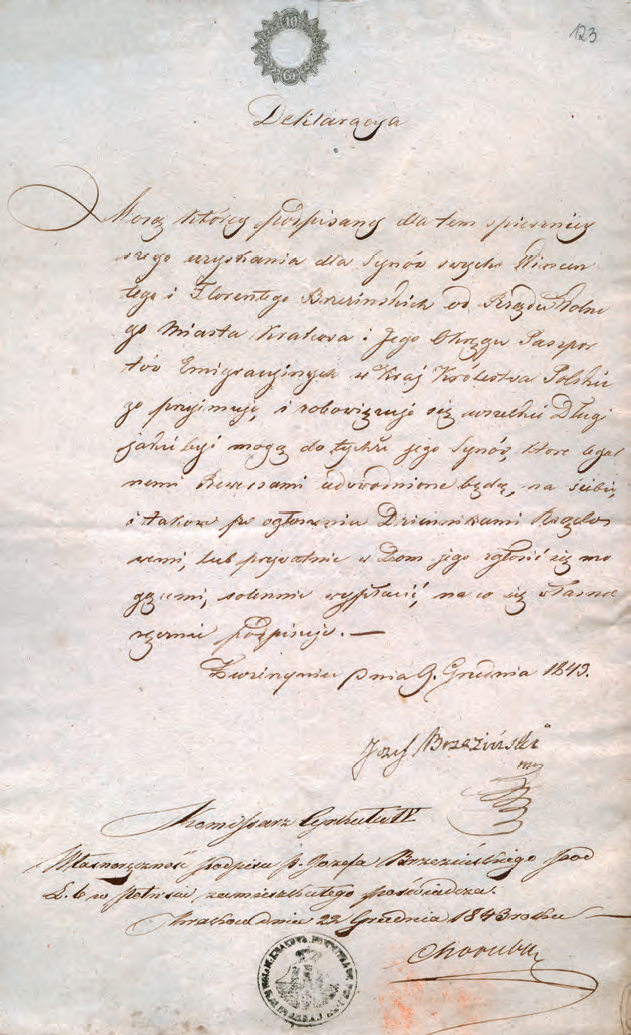 123
10
Gr
Deklaracya
Mocą którey podpisany dla tem spieszniey
szego uzyskania dla Synów swych Wincen
tego i Florentego Brzezińskich od Rządu Wolne
go Miasta Krakowa i Jego Okręgu Paszpor
tów Emigracyinych w Kray Królestwa Polskie
go przyimuje, i zobowięzuje się wszelkie Długi
jakie być mogą do tychże jego Synów, które legal
nemi Rewersami udowodnione będą, na siebie
i takowe po ogłoszeniu Dziennikami Rządo
wemi, lub prywatnie w Dom jego zgłosić się mo
gącemi, solennie wypłacić, na co się własno
ręcznie podpisuje. —
dnia 9. Grudnia 1843.
Jozef Brzeziński
mp
Kommissarz Cyrkułu IV
Własnoręczność podpisu p. Jozefa Brzezińskiego pod
L. 6 w zamieszkałego poświadcza.
Kraków dnia 22 Grudnia 1843 roku